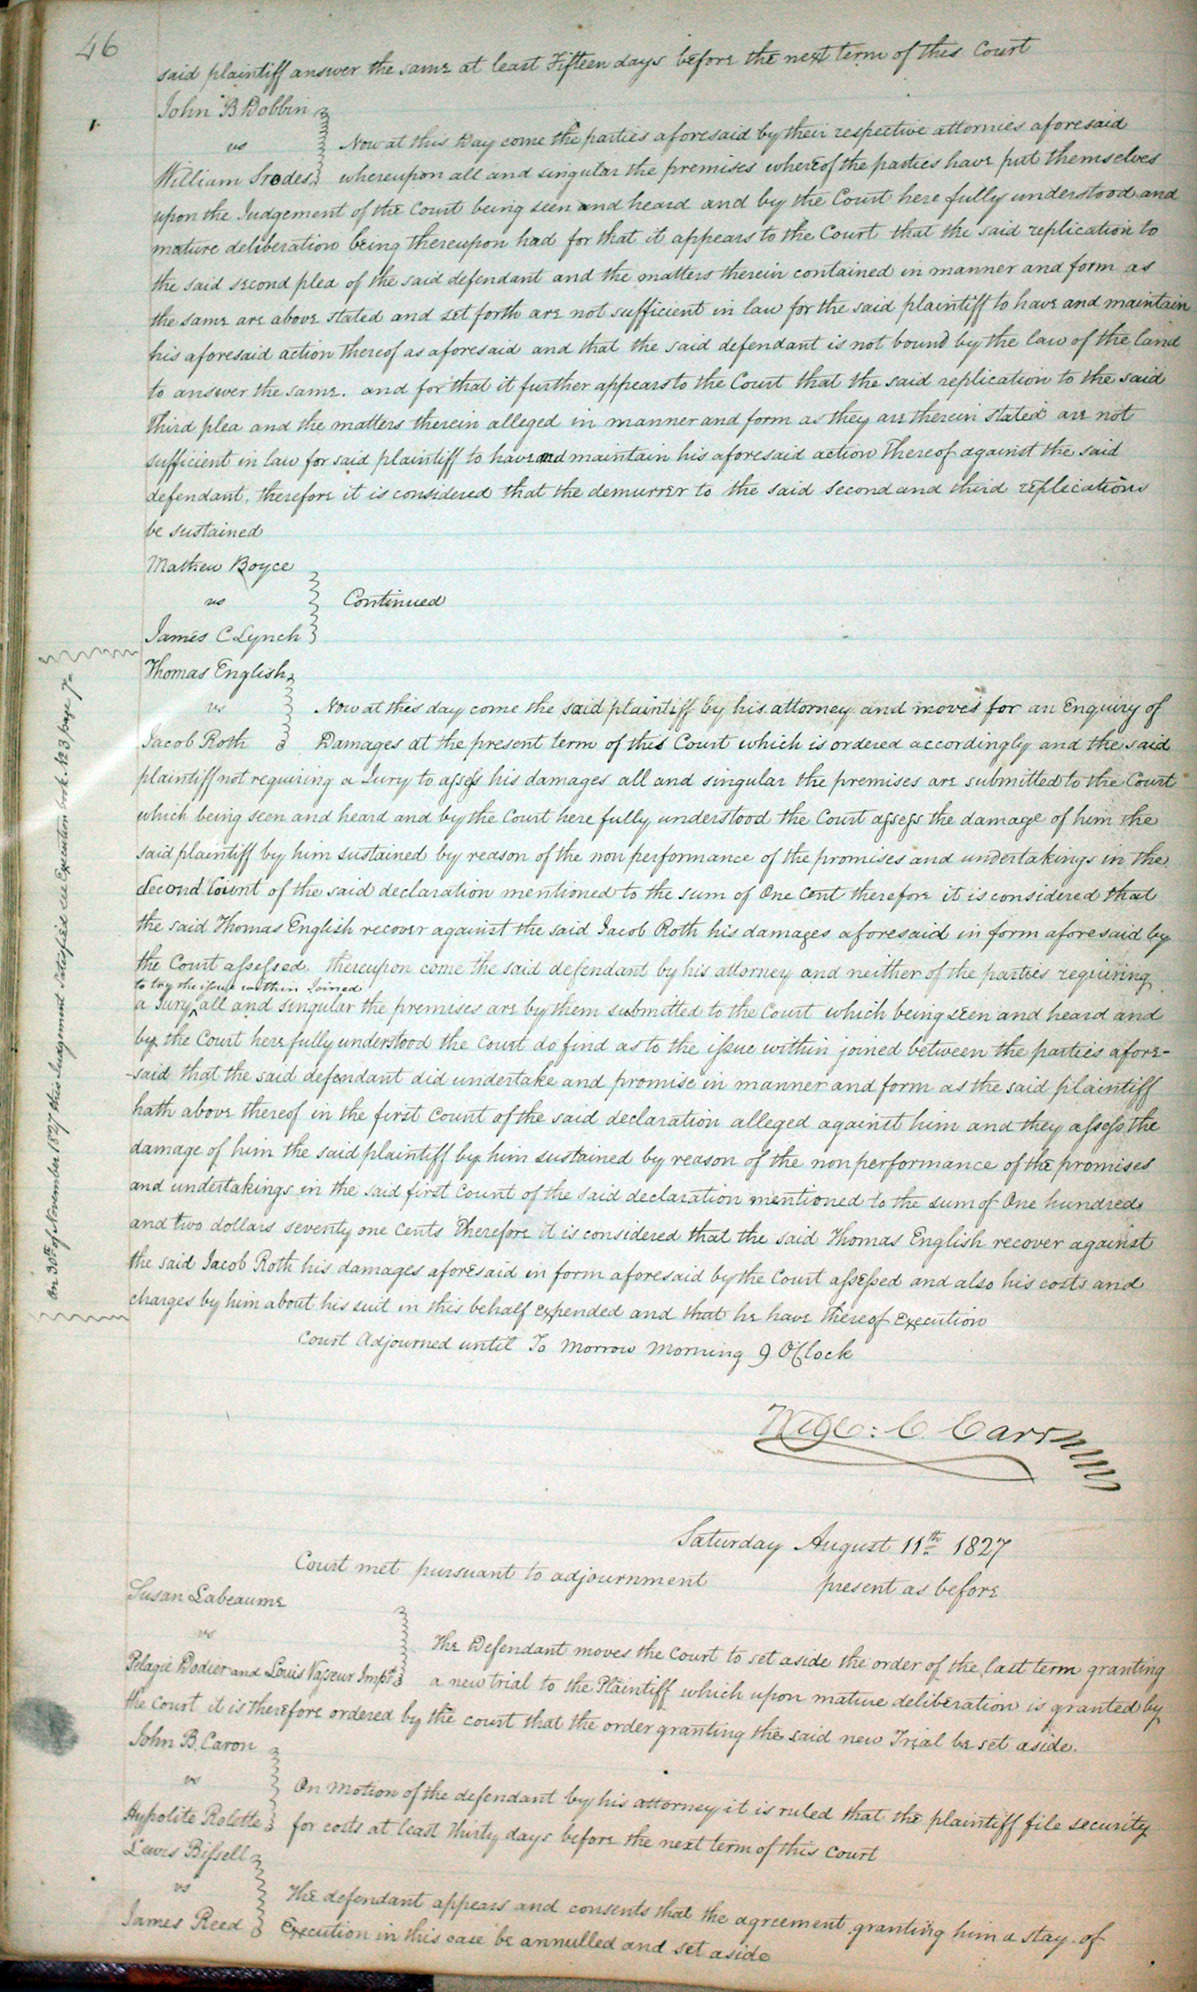 46
said plaintiff answer the same at least Fifteen days before the next term of this Court
John B Dobbin
vs
William Srodes
Now at this Day come the parties aforesaid by their respective attornies aforesaid
whereupon all and singular the premises whereof the parties have put themselves
upon the Judgement of the Court being seen and heard and by the Court here fully understood and
mature deliberation being thereupon had for that it appears to the Court that the said replication to
the said second plea of the said defendant and the matters therein contained in manner and form as
the same are above stated and set forth are not sufficient in law for the said plaintiff to have and maintain
his aforesaid action thereof as aforesaid and that the said defendant is not bound by the law of the land
to answer the same. and for that it further appears to the Court that the said replication to the said
Third plea and the matters therein alleged in manner and form as they are therein stated are not
sufficient in law for said plaintiff to have and maintain his aforesaid action Thereof against the said
defendant. therefore it is considered that the demurrer to the said second and third replications
be sustained
Mathew Boyce
vs
James C Lynch
Continued
Thomas English
vs
Jacob Roth
Now at this day come the said plaintiff by his attorney and moves for an Enquiry of
Damages at the present term of this Court which is ordered accordingly and the said
plaintiff not requiring a Jury to assess his damages all and singular the premises are submitted to the Court
which being seen and heard and by the Court here fully understood the Court assess the damage of him the
said plaintiff by him sustained by reason of the non performance of the promises and undertakings in the
Second Count of the said declaration mentioned to the sum of One Cent therefore it is considered that
the said Thomas English recover against the said Jacob Roth his damages aforesaid in form aforesaid by
the Court assessed. thereupon come the said defendant by his attorney and neither of the parties requiring
to try the issue within Joined
a Jury all and singular the premises are by them submitted to the Court which being seen and heard and
by the Court here fully understood the Court do find as to the issue within joined between the parties afore-
-said that the said defendant did undertake and promise in manner and form as the said plaintiff
hath above thereof in the first Count of the said declaration alleged against him and they assess the
damage of him the said plaintiff by him sustained by reason of the non performance of the promises
and undertakings in the said first Count of the said declaration mentioned to the sum of One hundred
and two dollars seventy one Cents Therefore it is considered that the said Thomas English recover against
the said Jacob Roth his damages aforesaid in form aforesaid by the Court assessed and also his costs and
charges by him about his suit in this behalf expended and that he have thereof Execution
On 30th of November 1827 this Judgement Satisfied see Execution book. 123 page 7-
Court Adjourned until To Morrow Morning 9 O'Clock
Wm: C. Carr
Saturday August 11th 1827
Court met pursuant to adjournment present as before
Susan Labeaume
vs
Pelagie Dodier and Louis Vasseur Impt
The Defendant moves the Court to set aside the order of the last term granting
a new trial to the Plaintiff which upon mature deliberation is granted by
the Court it is therefore ordered by the court that the order granting the said new Trial be set aside.
John B. Caron
vs
Hypolite Rolette
On Motion of the defendant by his attorney it is ruled that the plaintiff file security
for costs at least thirty days before the next term of this Court
Lewis Bissell
vs
James Reed
The defendant appears and consents that the agreement granting him a stay of
Execution in this case be annulled and set aside